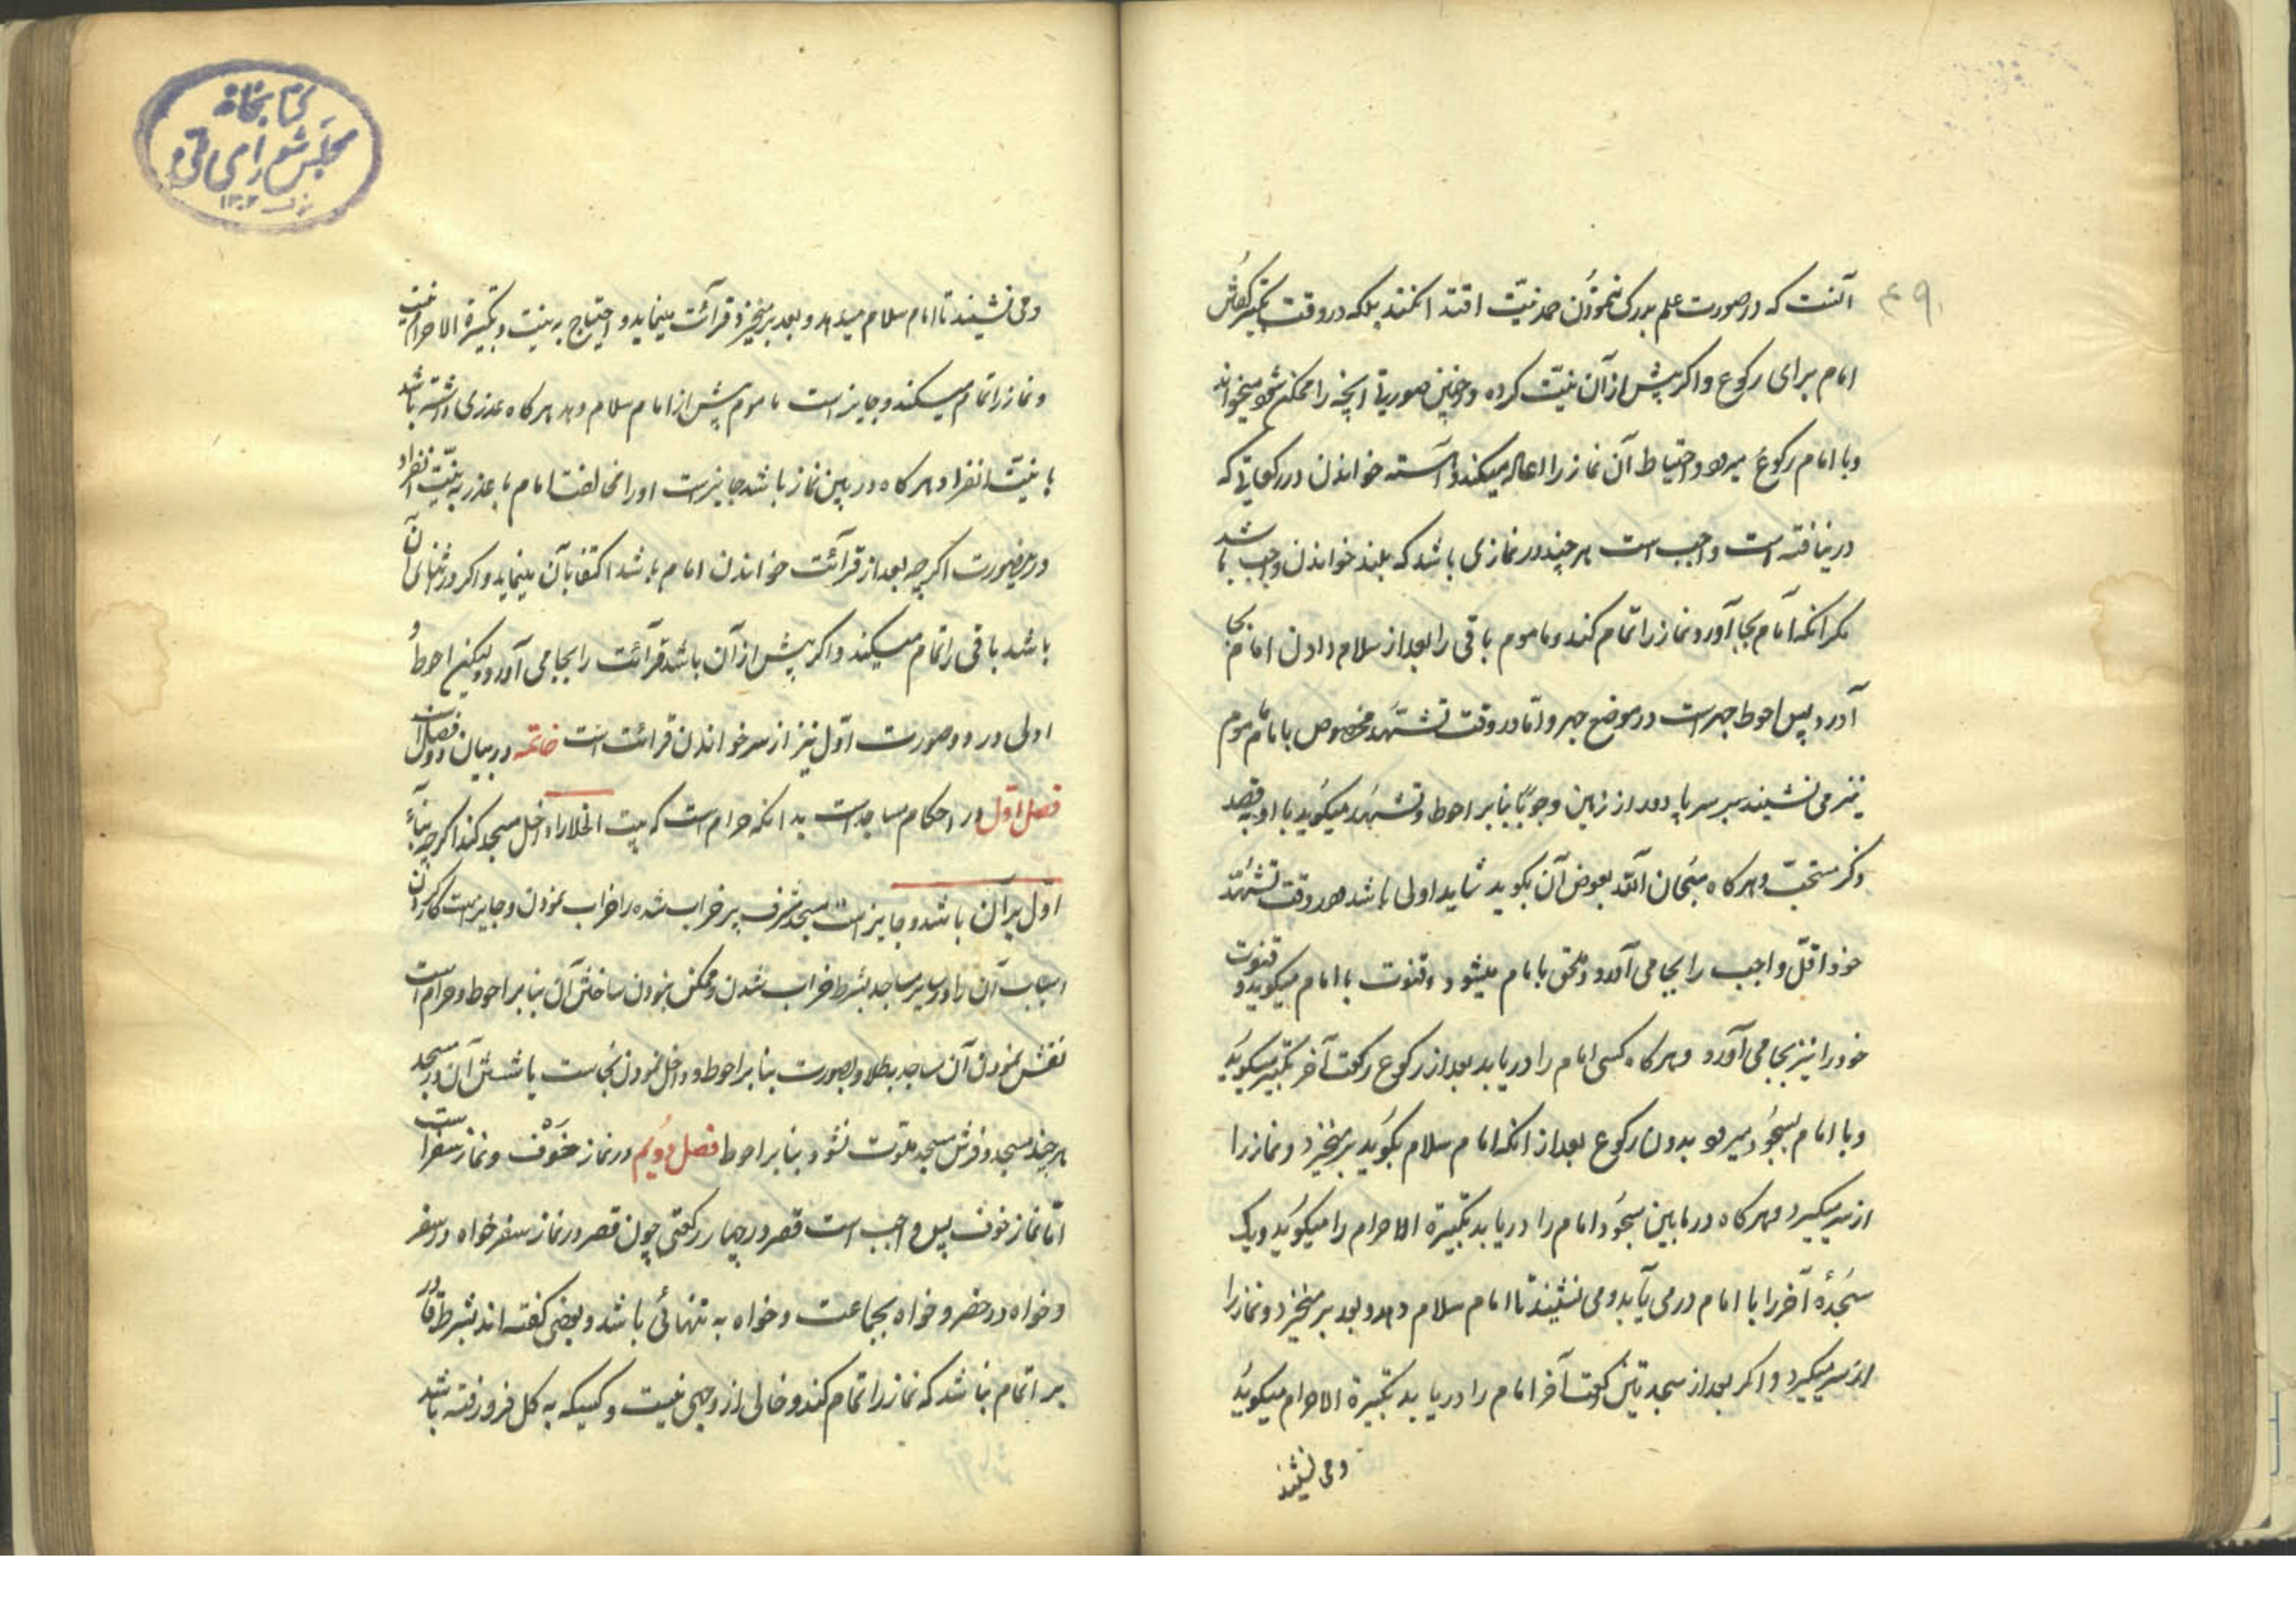 ۴۹
آنست که در صورت علم بدرک ننمودن حمد نیّت اقتدا نکند بلکه در وقت تکبیر گفتن
امام برای رکوع و اگر پیش از آن نیّت کرده در چنین صورتی آنچه را ممکن شود میخواند
و با امام رکوع میرود و احتیاط آن نماز را اعاده میکند و آهسته خواندن در رکعاتی که
در نیافته است واجب است هر چند در نمازی باشد که بلند خواندن واجب باشد
مگر آنکه امام بجا آورد و نماز را تمام کند و ماموم باقی را بعد از سلام دادن امام بجا
آورد پس احوط جهر است در موضع جهر و امّا در وقت تشهّد مخصوص با امام ماموم
نیز می نشیند بر سر پا دور از زمین وجوبًا بنا بر احوط و تشهّد میگوید با او به قصد
ذکر مستحبّ و هر گاه سُبحان اللّه بعوض آن بگوید شاید اولی باشد و در وقت تشهّد
خود اقلّ واجب را بجا می آورد و ملحق با امام میشود و قنوت با امام میگوید و قنوت
خود را نیز بجا می آورد و هر گاه کسی امام را دریابد بعد از رکوع رکعت آخر تکبیر میگوید
و با امام بسجود میرود بدون رکوع بعد از آنکه امام سلام بگوید برمیخیزد و نماز را
از سر میگیرد و هر گاه در ما بین سجود امام را دریابد تکبیرة الاحرام را میگوید و یک
سجدهٔ آخر را با امام در می یابد و می نشیند تا امام سلام دهد و بعد بر میخیزد و نماز را
از سر میگیرد و اگر بعد از سجدتین رکعت آخر امام را دریابد تکبیرة الاحرام میگوید
و می نشیند
کتابخانهٔ
مجلس شورای ملی
۱۳۰۲
و می نشیند تا امام سلام میدهد و بعد برمیخیزد و قرآئت مینماید و احتیاج به نیت و تکبیرة الاحرام نیست
و نماز را تمام میکند و جایز است ماموم پیش از امام سلام دهد هر گاه عذری داشته باشد
با نیّت انفراد و هر گاه در بین نماز باشد جایز است او را مخالفت امام با عذر به نیّت انفراد
در اینصورت اگر چه بعد از قرآئت خواندن امام باشد اکتفا بآن مینماید و اگر در اثنای آن
باشد باقی را تمام میکند و اگر پیش از آن باشد قرآئت را بجا می آورد و لیکن احوط و
اولی در دو صورت اوّل نیز از سر خواندن قرائت است خاتمه در بیان دو فصل است
فصل اوّل در احکام مساجد است بدانکه حرام است که بیت الخلا را داخل مسجد کند اگر چه بنآءً
اوّل بر آن باشد و جایز است مسجد مشرف بر خراب شده را خراب نمودن و جایز است کار کردن
اسباب آن را در سایر مساجد بشرط خراب شدن و ممکن نبودن ساختن آن بنا بر احوط و حرام است
نقش نمودن آن مساجد بطلا و بصورت بنا بر احوط و داخل نمودن نجاست یا شستن آن در مسجد
هر چند مسجد و فرش مسجد ملوّث نشود بنا بر احوط فصل دویّم در نماز خوف و نماز سفر است
امّا نماز خوف پس واجب است قصر در چهار رکعتی چون قصر در نماز سفر خواه در سفر
و خواه در حضر و خواه بجماعت و خواه به تنهائی باشد و بعضی گفته اند بشرط قادر
بر اتمام نباشد که نماز را تمام کند و خالی از وجهی نیست و کسیکه به گل فرو رفته باشد